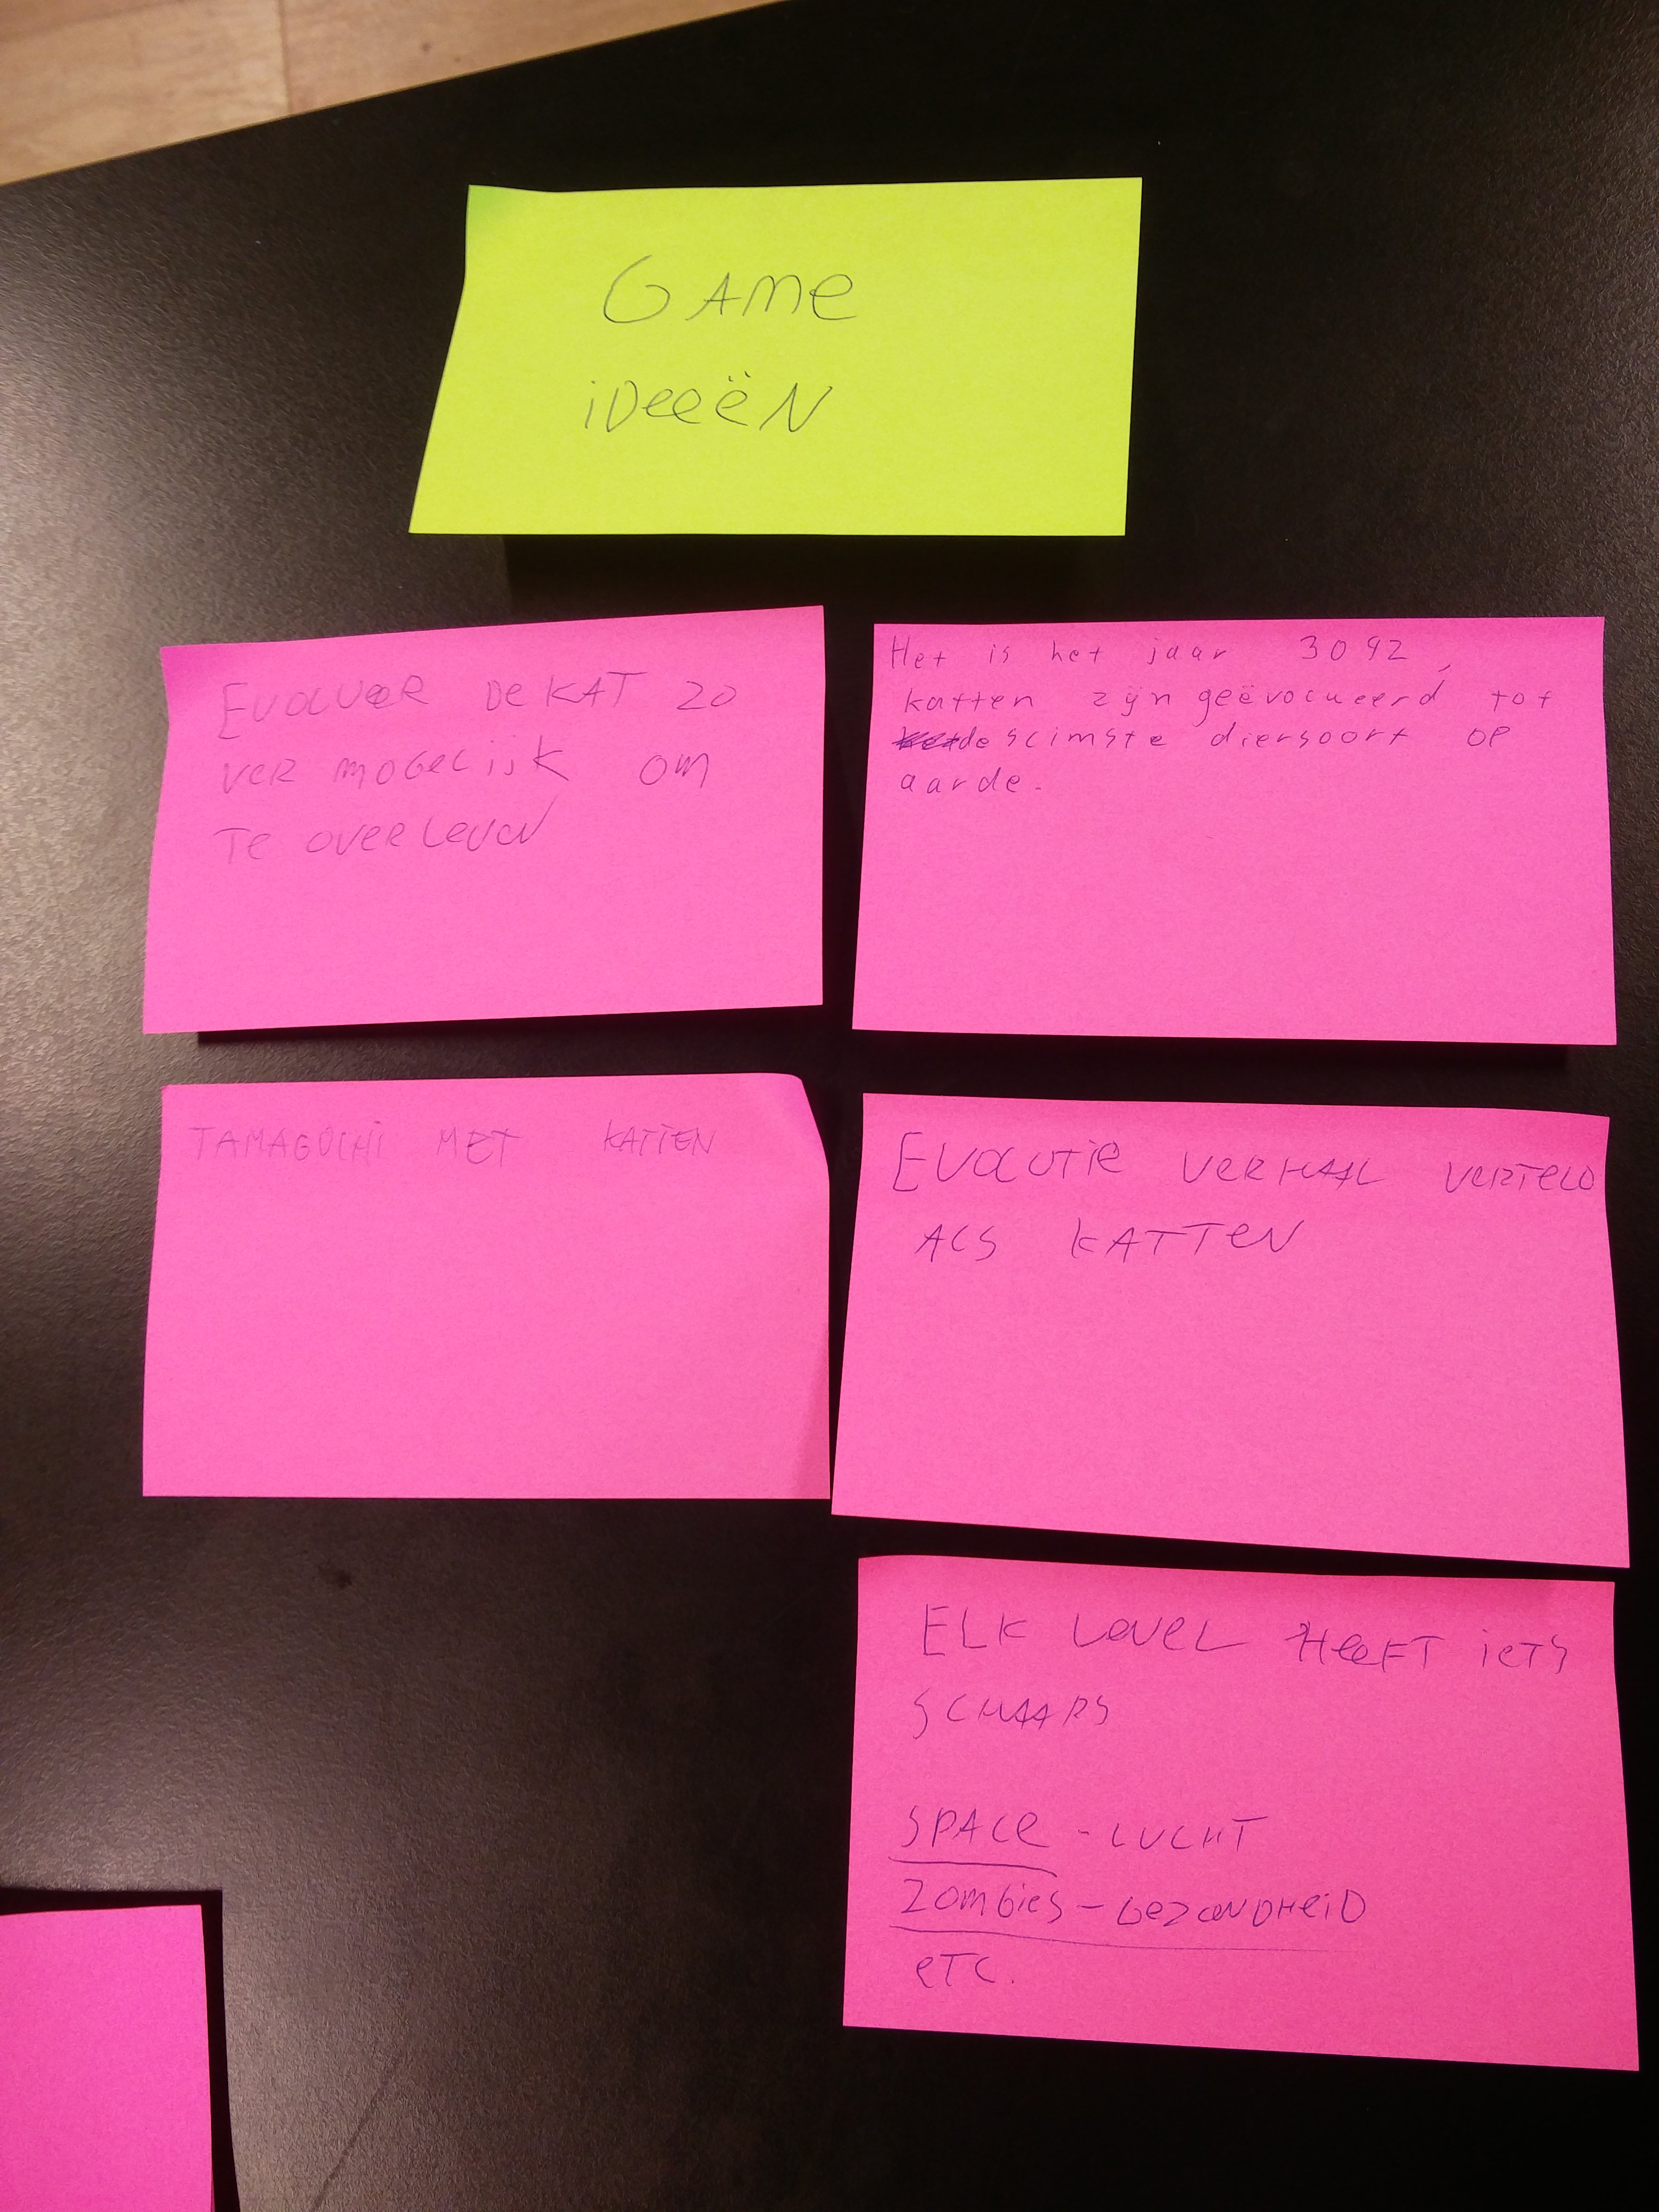 GAME
iDeeëN
EVOLUEER DE KAT ZO
VER MOGELIJK OM
TE OVERLEVEN
Het is het jaar 3092,
katten zijn geëvolueerd tot
de slimste diersoort op
aarde.
TAMAGOCHI MET KATTEN
EVOLUTIE VERHAAL VERTELD
ALS KATTEN
ELK LEVEL HEEFT IETS
SCHAARS
SPACE - LUCHT
ZOMBIES - GEZONDHEID
ETC.